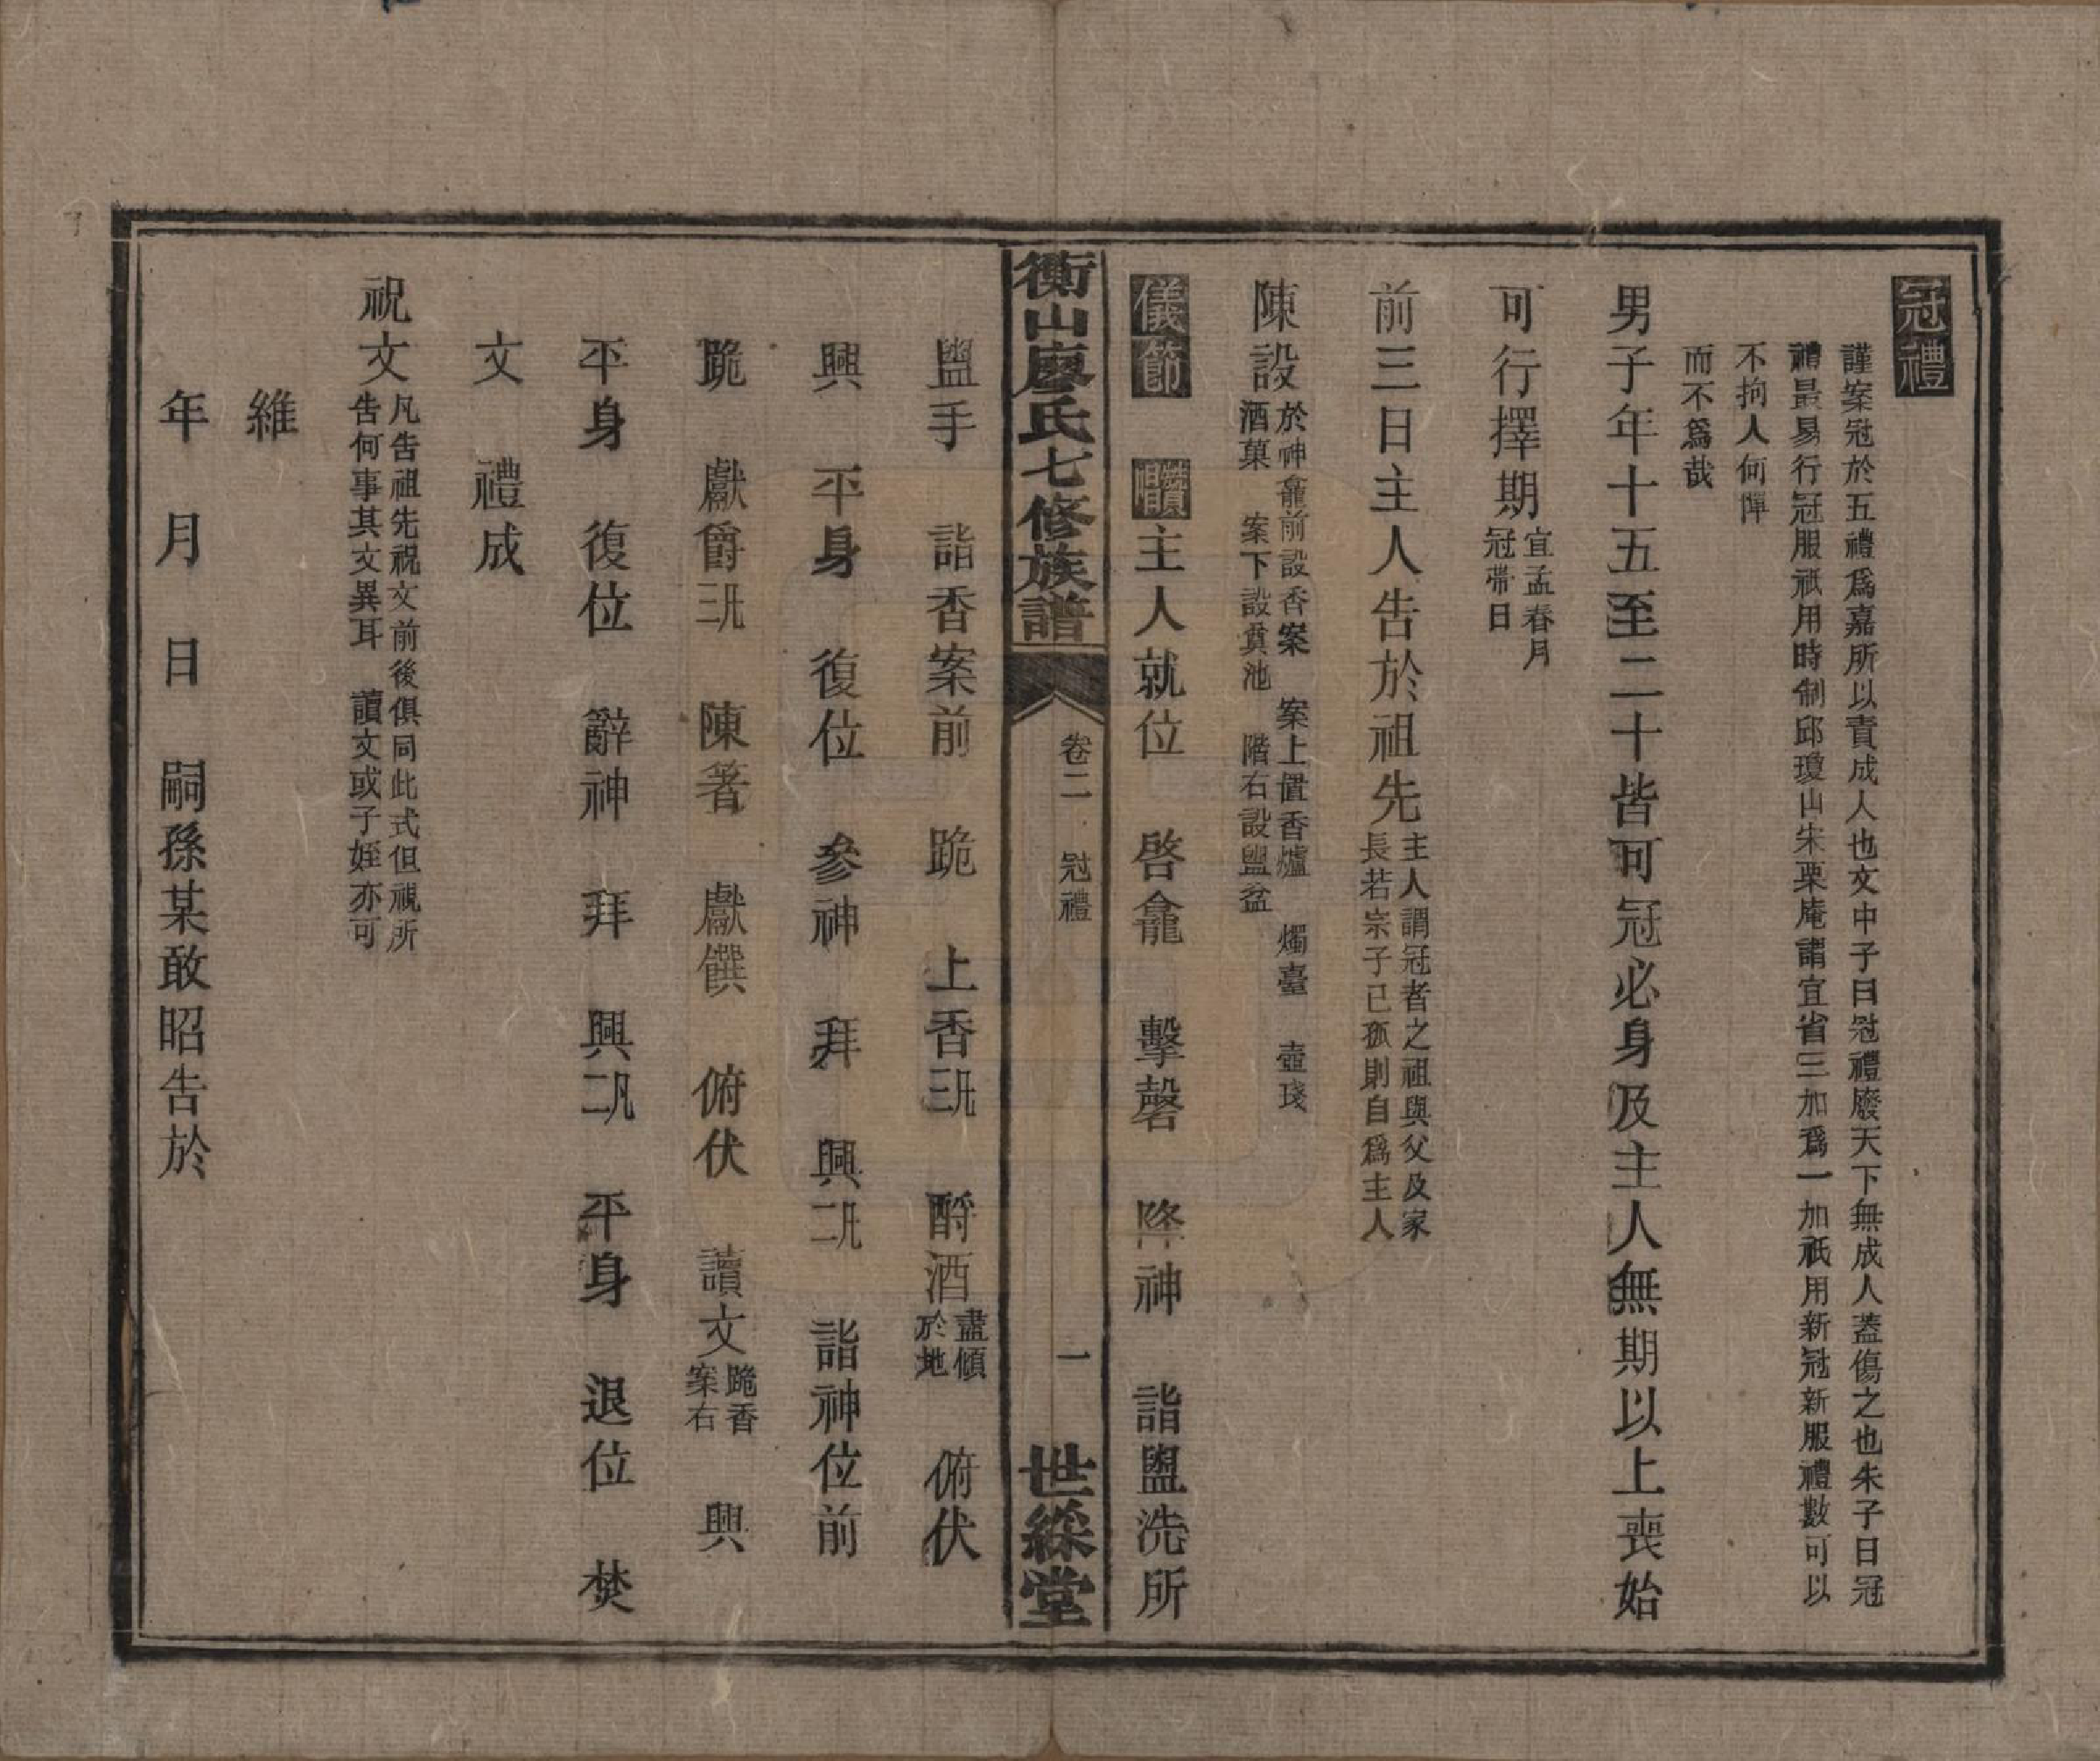 冠禮
謹案冠於五禮爲嘉所以責成人也文中子曰冠禮廢天下無成人蓋傷之也朱子曰冠
禮最易行冠服祇用時制邱瓊山朱栗庵謂宜省三加爲一加祇用新冠新服禮數可以
不拘人何憚
而不爲哉
男子年十五至二十皆可冠必身及主人無期以上喪始
可行擇期宜孟春月冠帶日
前三日主人告於祖先主人謂冠者之祖與父及家長若宗子已孤則自爲主人
陳設於神龕前設香案 案上置香爐 燭臺 壺琖酒菓 案下設奠池 階右設盥盆
儀節 贊主人就位 啓龕 擊磬 降神 詣盥洗所
衡山廖氏七修族譜 卷二 冠禮 一 世綵堂
盥手 詣香案前 跪 上香三 酹酒盡傾於地 俯伏
興 平身 復位 參神 拜 興二 詣神位前
跪 獻爵三 陳箸 獻饌 俯伏 讀文跪香案右 興
平身 復位 辭神 拜 興二 平身 退位 焚
文 禮成
祝文凡告祖先祝文前後俱同此式但視所告何事其文異耳 讀文或子姪亦可
維
年 月 日 嗣孫某敢昭告於